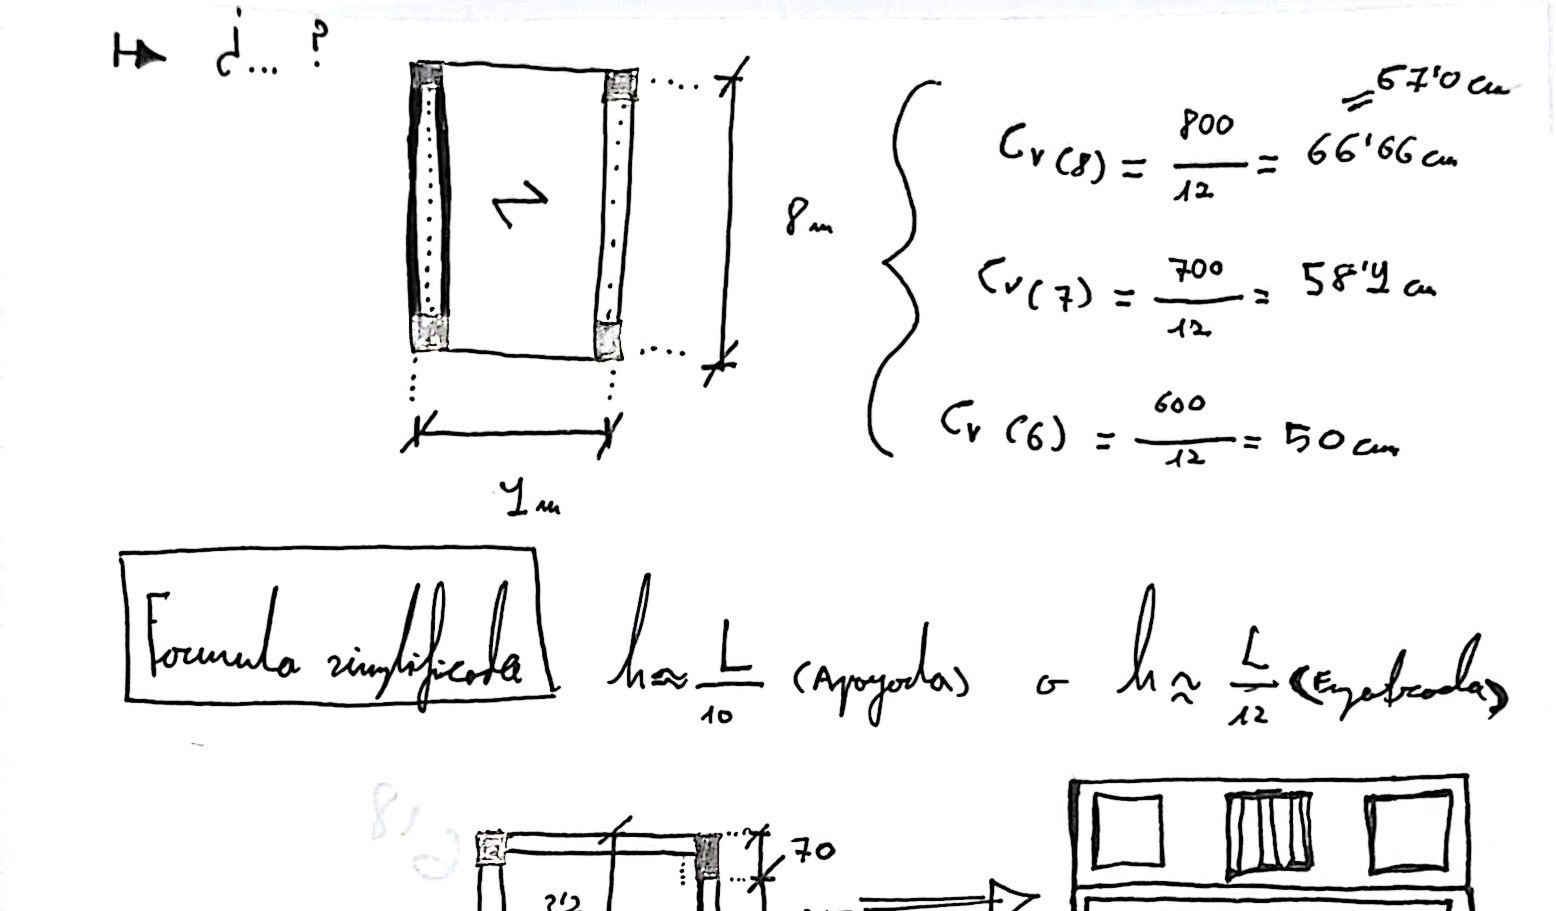 ↦ ¿... ?
67'0 cm
Cv (8) = 800/12 = 66'66 cm
8 m
Cv (7) = 700/12 = 58'4 cm
Cv (6) = 600/12 = 50 cm
4 m
Formula simplificada h ≈ L/10 (Apoyada) o h ≈ L/12 (Empotrada)
70